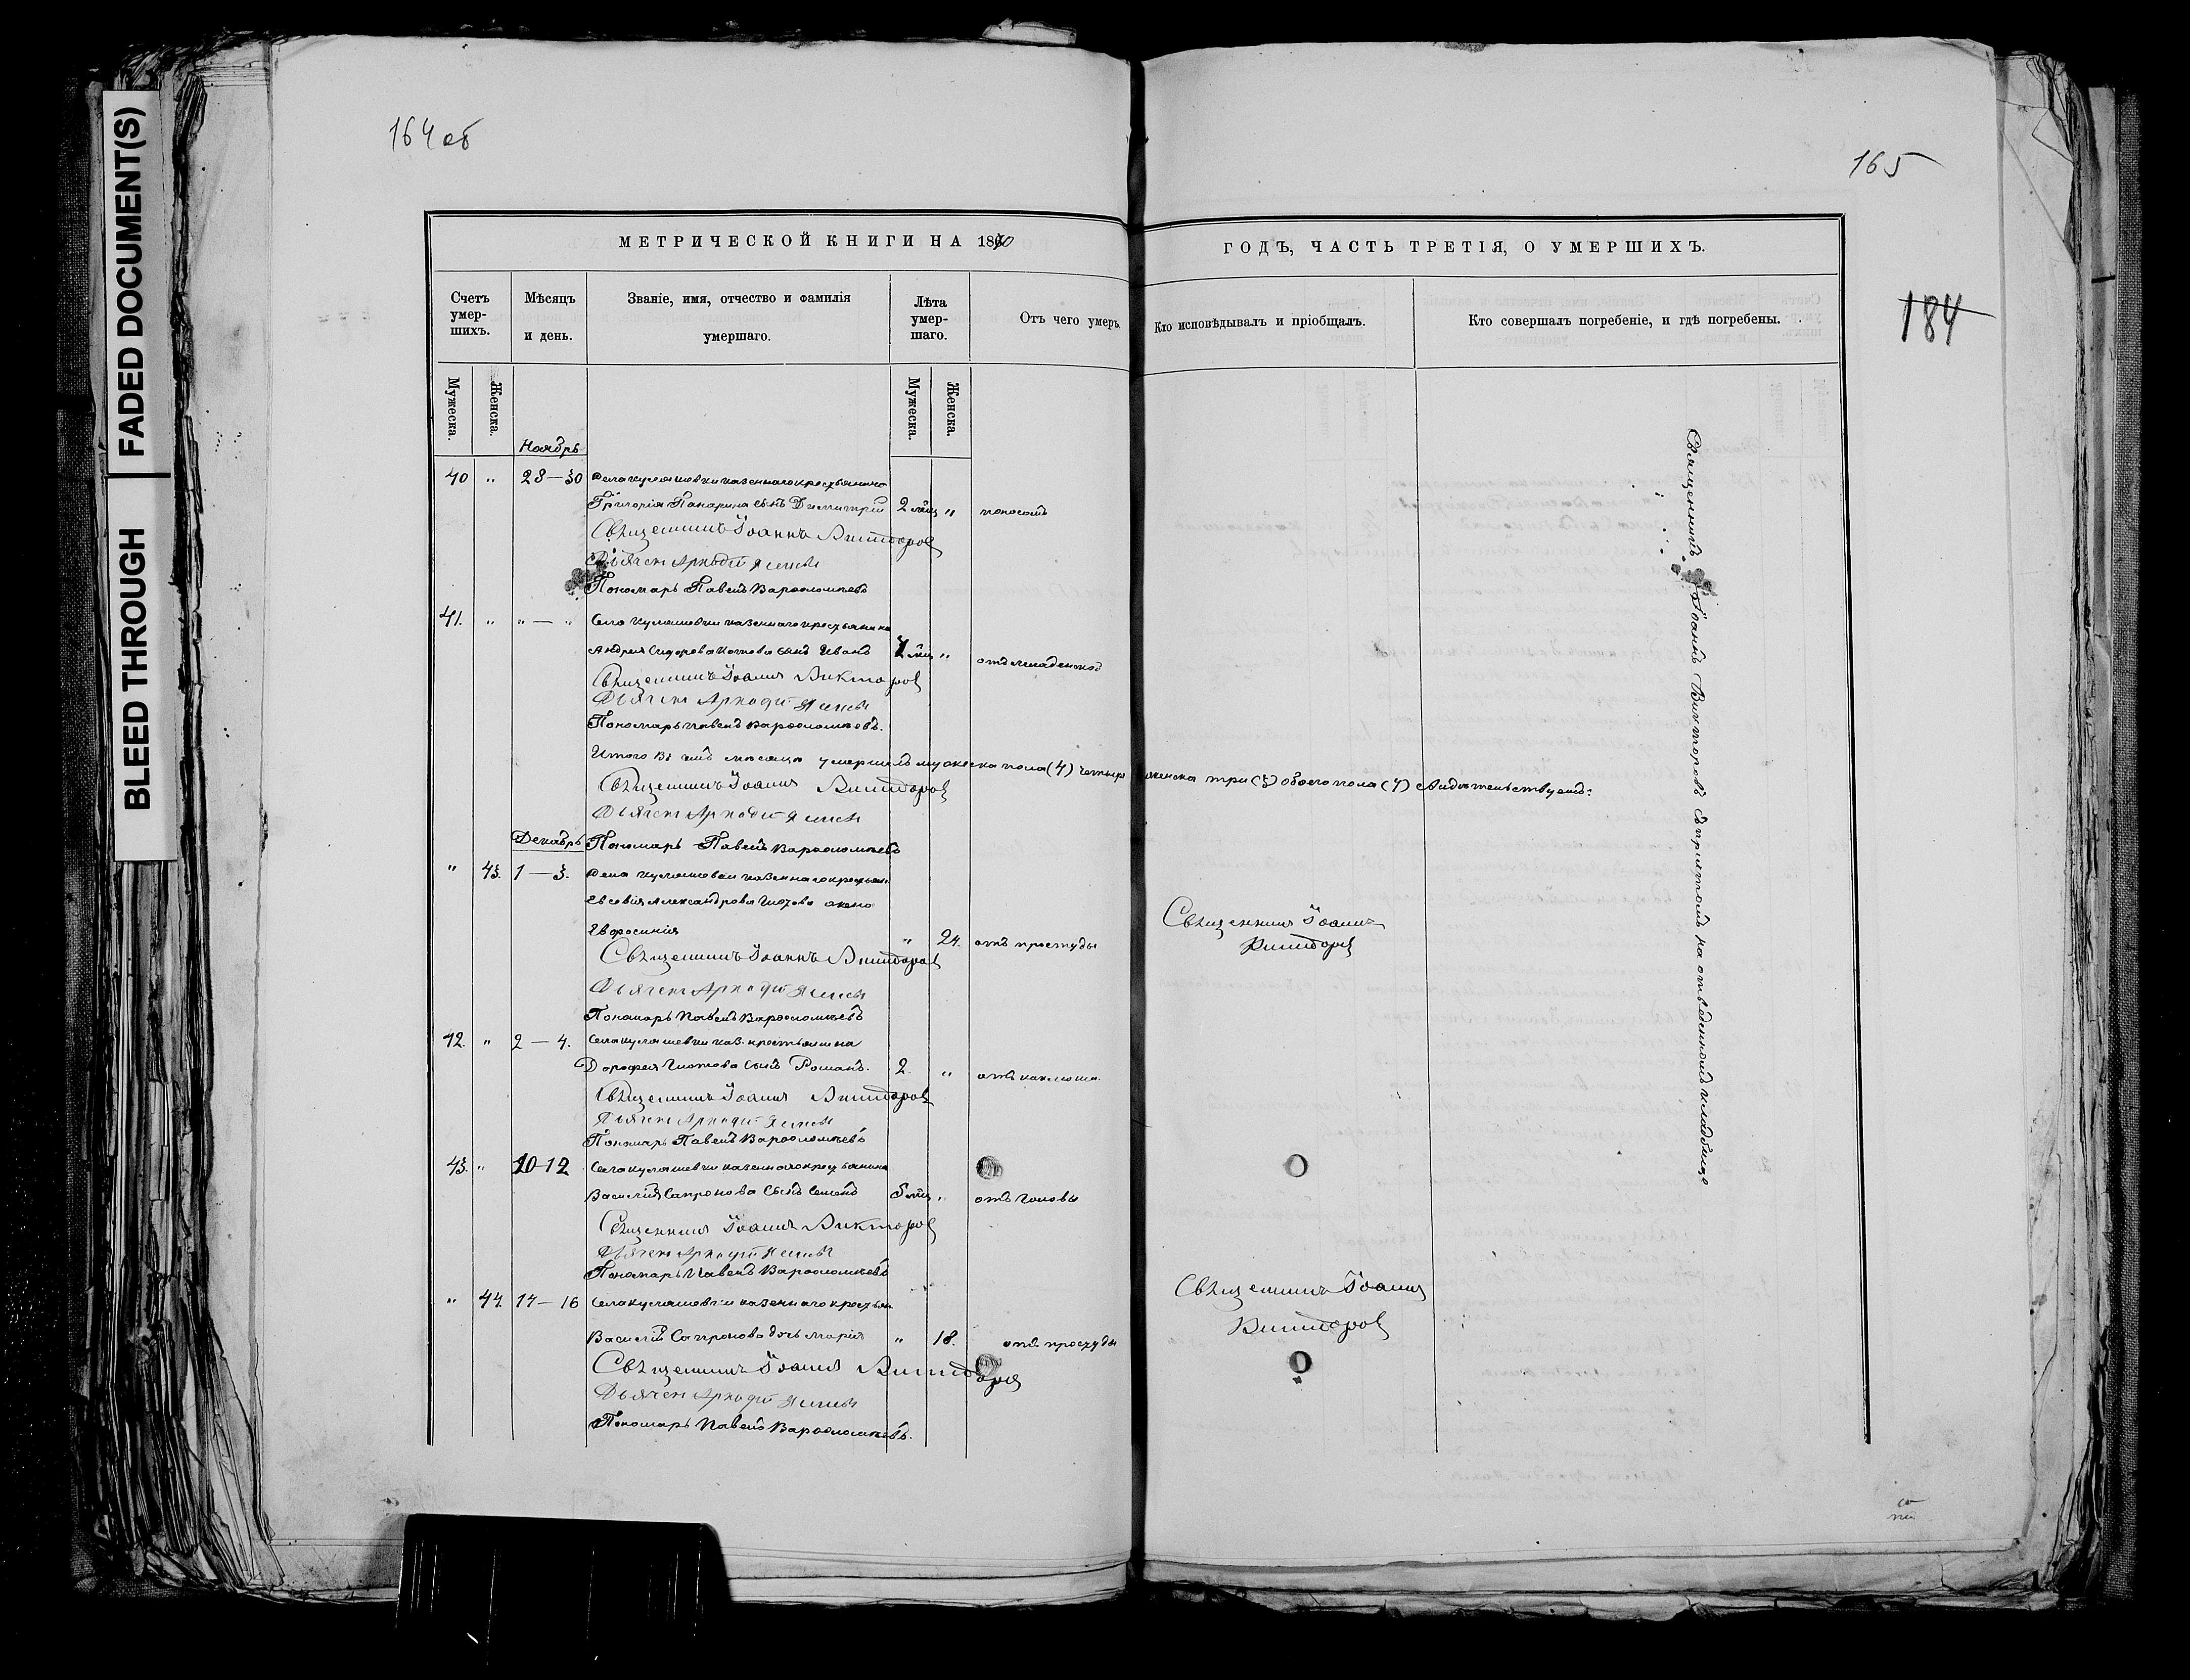 164 об
165
184
BLEED THROUGH
FADED DOCUMENT(S)
МЕТРИЧЕСКОЙ КНИГИ НА 1870
ГОДЪ, ЧАСТЬ ТРЕТІЯ, О УМЕРШИХЪ.
Счетъ умер-шихъ.
Мѣсяцъ и день.
Званіе, имя, отчество и фамилія умершаго.
Лѣта умер-шаго.
Отъ чего умеръ.
Кто исповѣдывалъ и пріобщалъ.
Кто совершалъ погребеніе, и гдѣ погребены.
Мужеска.
Женска.
Мужеска.
Женска.
Ноябрь
40 " 28-30 Села Кулешовки казеннаго крестьянина
Григорія Панарина сынъ Димитрій 2 мѣц " поносомъ
Священникъ Іоаннъ Викторовъ
Дьячекъ Аркадій
Пономарь Павелъ Варфоломѣевъ
41. " " — " Села Кулешовки казеннаго крестьянина
Андрея Сидорова сынъ Иванъ мѣц " отъ младенской
Священникъ Іоаннъ Викторовъ
Дьячекъ Аркадій
Пономарь Павелъ Варфоломѣевъ.
Итого въ мѣсяцѣ умершихъ мужеска пола (4) четыре женска три (3) обоего пола (7) свидѣтельствуемъ:
Священникъ Іоаннъ Викторовъ
Дьячекъ Аркадій
Декабрь
Пономарь Павелъ Варфоломѣевъ
" 43. 1 — 3. Села Кулешовки казеннаго крестьян.
Евсевія Александрова жена
Евфросинія " 24. отъ простуды
Священникъ Іоаннъ
Викторовъ
Священникъ Іоаннъ Викторовъ
Дьячекъ Аркадій
Пономарь Павелъ Варфоломѣевъ
42. " 2 — 4. Села Кулешовки каз. крестьянина
Дорофея сынъ Романъ. 2. " отъ коклюша.
Священникъ Іоаннъ Викторовъ
Дьячекъ Аркадій
Пономарь Павелъ Варфоломѣевъ
43. " 10-12 Села Кулешовки казеннаго крестьянина
Василія Сапронова сынъ Семенъ 5 мѣц " отъ головы
Священникъ Іоаннъ Викторовъ
Дьячекъ Аркадій
Пономарь Павелъ Варфоломѣевъ
" 44. 14 — 16 Села Кулешовки казеннаго крестьян.
Василія Сапронова дочь Марія " 18. отъ простуды
Священникъ Іоаннъ
Викторовъ
Священникъ Іоаннъ Викторовъ
Дьячекъ Аркадій
Пономарь Павелъ Варфоломѣевъ.
Священникъ Іоаннъ Викторовъ съ причтомъ на отведенномъ кладбищѣ